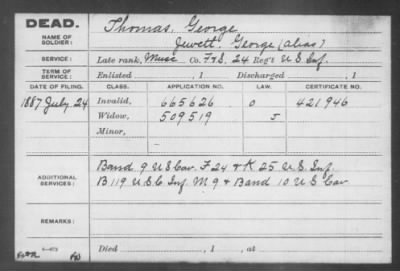 DEAD.
Thomas, George
NAME OF SOLDIER:
Jewett, George (alias)
SERVICE: Late rank, Musc Co. F&S, 24 Reg't U.S. Inf.
TERM OF SERVICE: Enlisted , 1 Discharged , 1
DATE OF FILING. CLASS. APPLICATION NO. LAW. CERTIFICATE NO.
1887 July 24 Invalid, 665626 O 421946
Widow, 509519 J
Minor,
Band 9 U S Cav. F 24 & K 25 U.S. Inf.
ADDITIONAL SERVICES: B 119 U.S.C. Inf. M 9 & Band 10 U S Cav
REMARKS:
Died , 1 , at